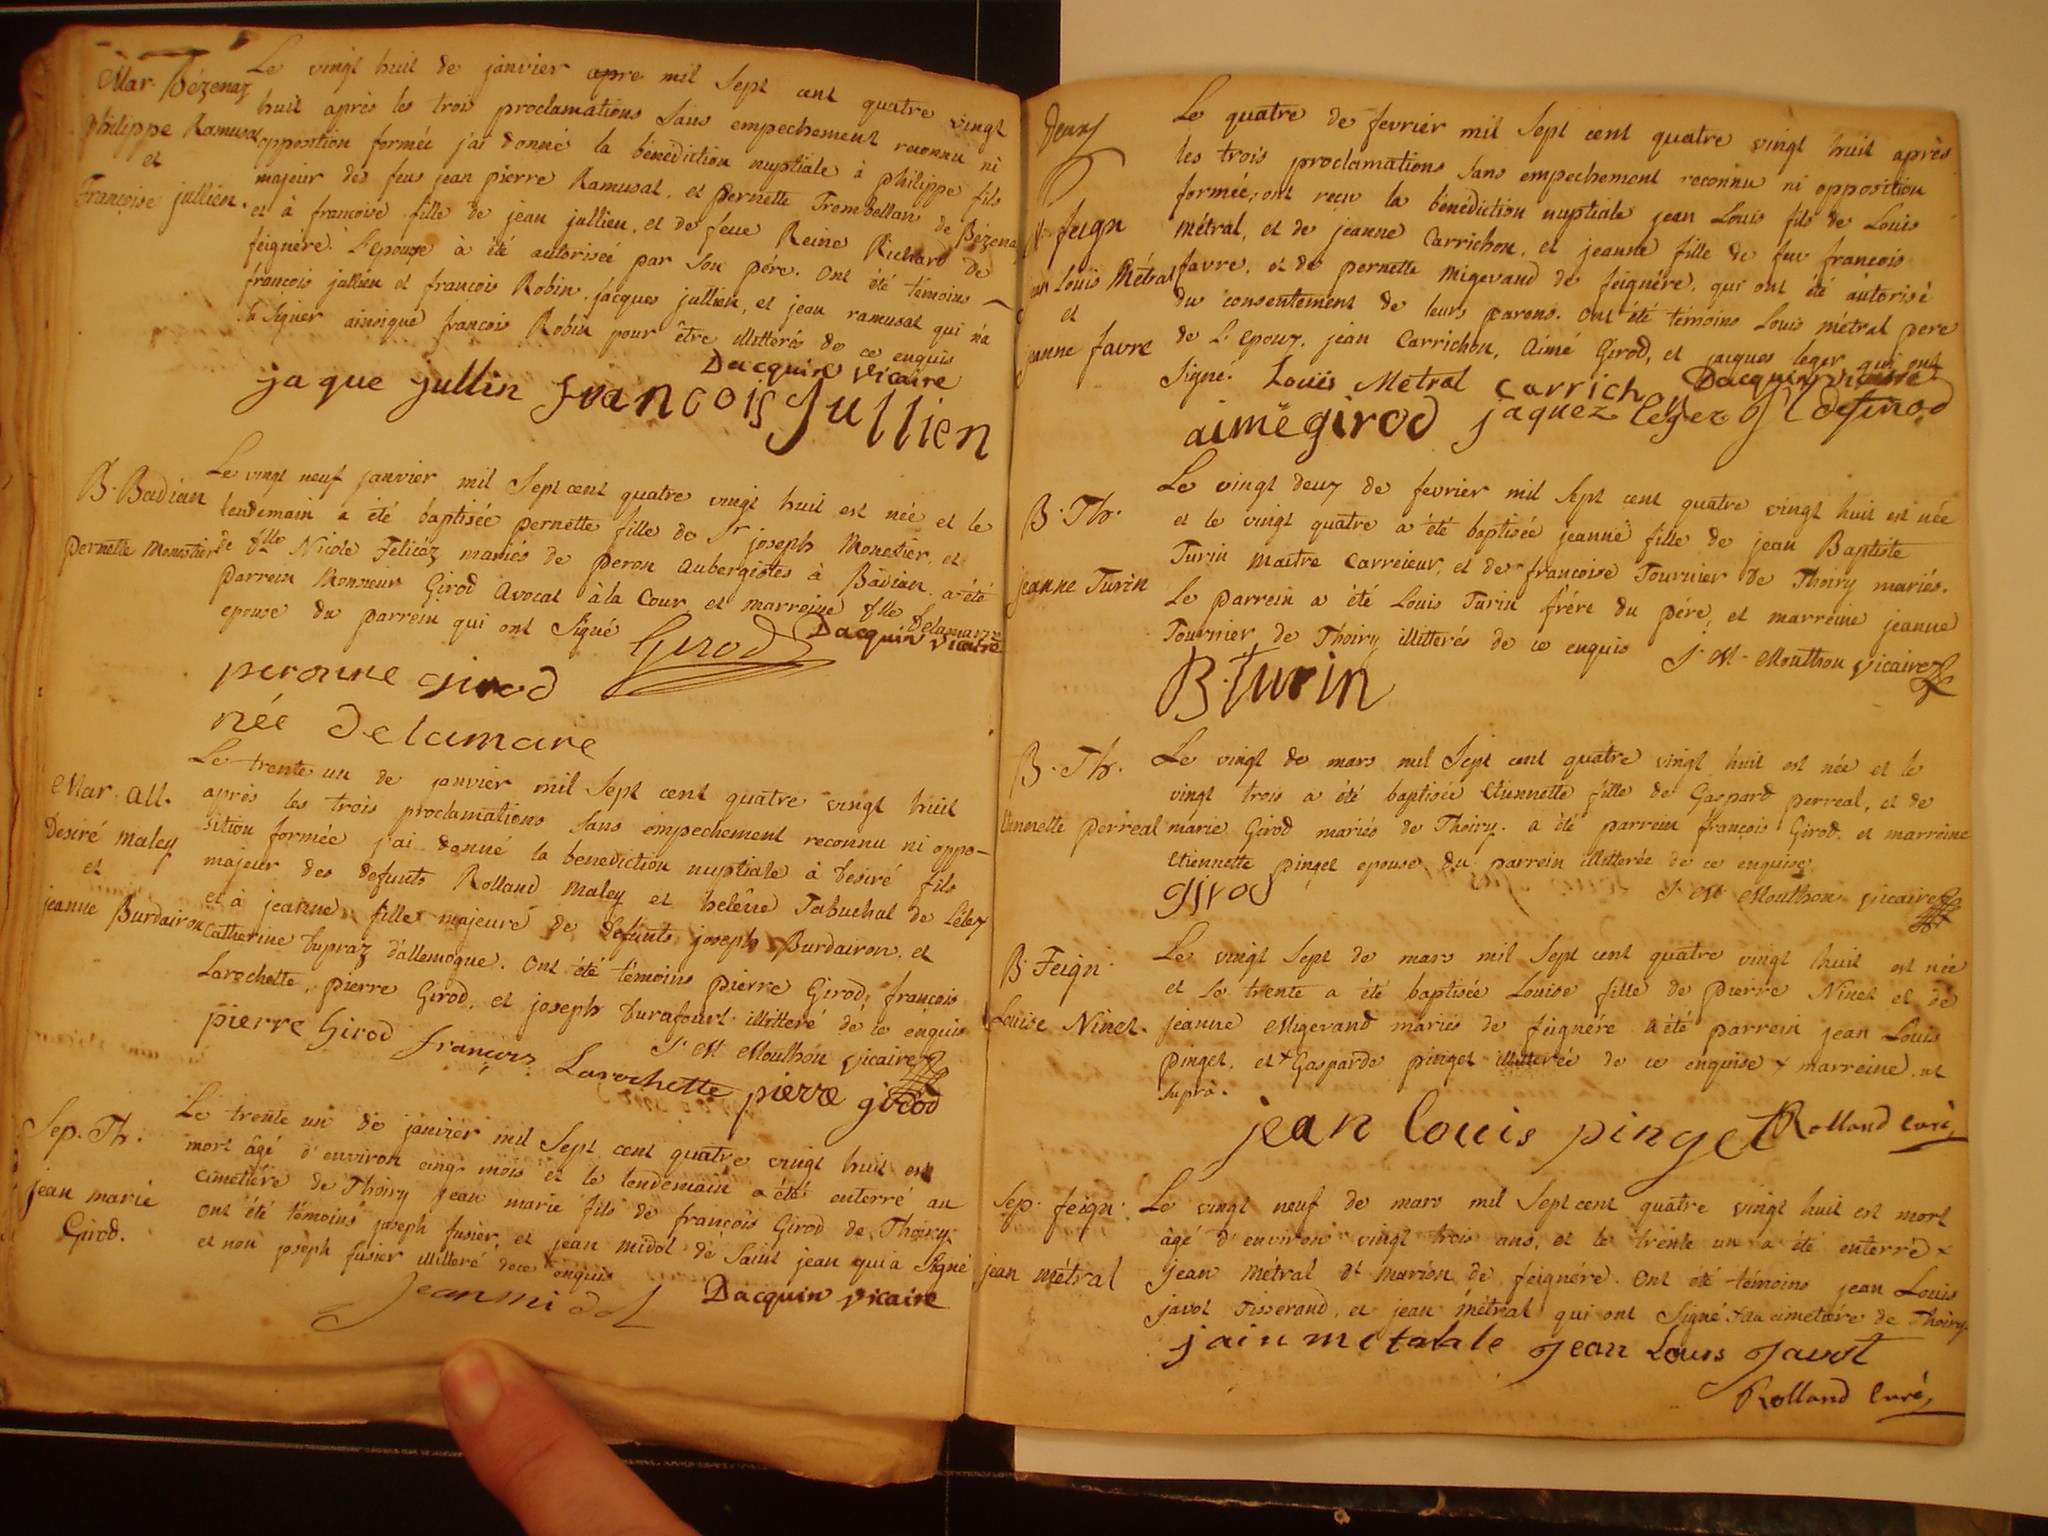 Mar. Bézenaz
philippe Ramusat
et
Françoise jullien.
Le vingt huit de janvier apre mil Sept cent quatre vingt
huit après les trois proclamations Sans empechement reconnu ni
opposition formée j'ai donné la bénédiction nuptiale à philippe fils
majeur des feus jean pierre Ramusat, et pernette Trombellan de Bézena
et à francoise fille de jean jullien, et de feue Reine Richard de
feignére. L'epouze à été autorisée par Son pére. Ont été témoins
francois jullien et francois Robin, jacques jullien, et jean ramusat qui n'a
Sù Signer ainsique francois Robin pour être illitterés de ce enquis
Dacquin vicaire
jaque jullin francois Jullien
B. Badian
pernette Monestier
Le vingt neuf janvier mil Sept cent quatre vingt huit est née et le
lendemain a été baptisée pernette fille de Sr joseph Monestier, et
de dlle Nicole Felicaz mariés de peron aubergistes à Badian. a été
parrein Monsieur Girod Avocat à la Cour et marreine dlle Delamarre
epouse du parrein qui ont Signé
Dacquin vicaire
Girod
peronne Girod
née Delamare
Mar. All.
Desiré maley
et
jeanne Burdairon
Le trente un de janvier mil Sept cent quatre vingt huit
après les trois proclamations Sans empechement reconnu ni oppo-
sition formée j'ai donné la benediction nuptiale à desiré fils
majeur des defunts Rolland Maley et heleine Tabuchat de Lélex
et à jeanne fille majeure de defunts joseph Burdairon, et
Catherine Dupraz d'allemogne. Ont été témoins pierre Girod, francois
Larochette, pierre Girod, et joseph Durafourt illitteré de ce enquis
J. M. Mouthon vicaire
pierre Girod françois Larochette pierre girod
Sep. Th.
jean marie
Girod.
Le trente un de janvier mil Sept cent quatre vingt huit est
mort âgé d'environ cinq mois et le lendemain a été enterré au
cimetiére de Thoiry jean marie fils de françois Girod de Thoiry.
Ont été témoins joseph fusier, et jean midol de Saint jean qui a Signé
et non joseph fusier illitteré de ce enquis
Dacquin vicaire
jean midol
Deux
feign
jean Louis Métral
et
jeanne favre
Le quatre de fevrier mil Sept cent quatre vingt huit après
les trois proclamations Sans empechement reconnu ni opposition
formée; ont reçu la bénédiction nuptiale jean Louis fils de Louis
Métral, et de jeanne Carrichon, et jeanne fille de feu francois
favre, et de pernette Migevand de feignére, qui ont été autorisé
du consentement de leurs parens. Ont été témoins Louis métral pere
de L'epoux, jean Carrichon, Aimé Girod, et jacques leger qui ont
Signé. Louïs Métral Carrich Dacquin vicaire
aimé girod jaquez leger
B. Th.
jeanne Turin
Le vingt deux de fevrier mil Sept cent quatre vingt huit est née
et le vingt quatre a été baptisée jeanne fille de jean Baptiste
Turin maitre Carreieur, et de francoise Tournier de Thoiry mariés.
Le parrein a été Louis Turin frére du pére, et marreine jeanne
Tournier de Thoiry illitterés de ce enquis J. M. Mouthon vicaire
B. Turin
B. Th.
Etiennette perreal
Le vingt de mars mil Sept cent quatre vingt huit est née et le
vingt trois a été baptisée Etiennette fille de Gaspard perreal, et de
marie Girod mariés de Thoiry. a été parrein françois Girod. et marreine
Etiennette pinget epouse du parrein illitterée de ce enquise
J. M. Mouthon vicaire
girod
B. Feign.
Louise Ninet.
Le vingt Sept de mars mil Sept cent quatre vingt huit est née
et Le trente a été baptisée Louise fille de pierre Ninet et de
jeanne Migevand mariés de feignére a été parrein jean Louis
pinget, et + Gasparde pinget illitterée de ce enquise + marreine. ut
Suprà.
jean louis pinget Rolland Curé,
Sep. feign.
jean métral
Le vingt neuf de mars mil Sept cent quatre vingt huit est mort
âgé d'environ vingt trois ans, et le trente un a été enterré +
jean Métral dt Marion de feignére. Ont été témoins jean Louis
javot Tisserand, et jean métral qui ont Signé + au cimetiére de Thoiry.
jain metalale jean Louis Javot
Rolland Curé,